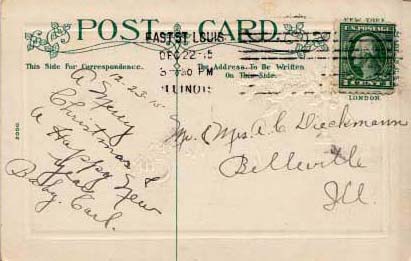 POST CARD
This Side For Correspondence.
The Address To Be Written
On This Side.
EAST ST. LOUIS
DEC 22
PM
ILLINOIS
NEW YORK
U.S. POSTAGE
LONDON.
12-23-15
A Merry
Christmas &
a Happy New
Year
Baby. Carl.
Mr. & Mrs A C Dieckmann
Belleville
Ill.